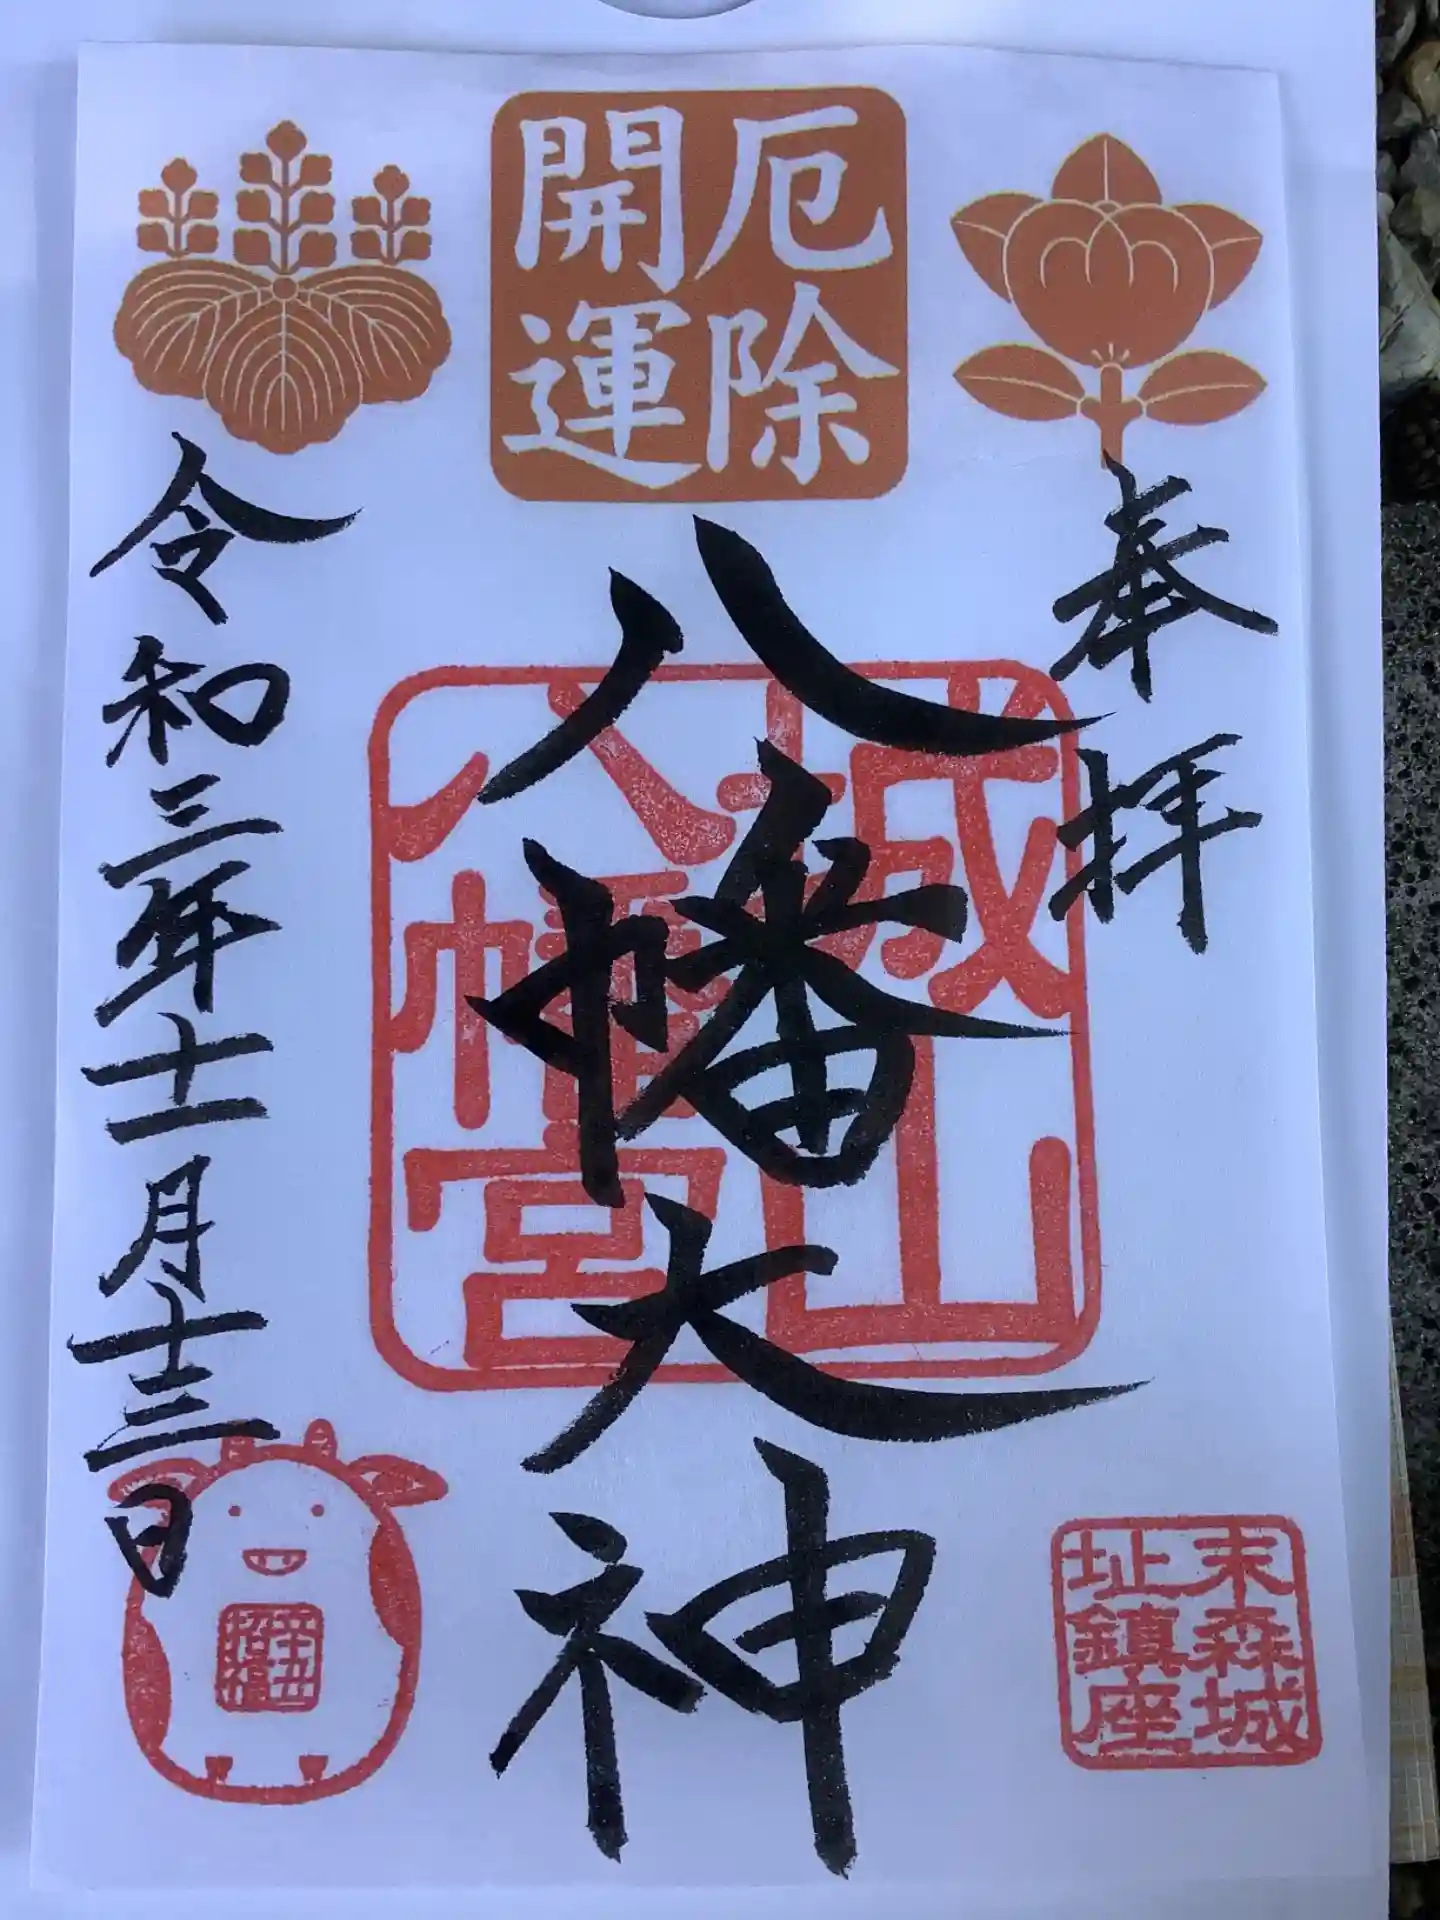 厄除
開運
奉拝
八幡大神
城山
八幡宮
令和三年十一月十三日
末森城
址鎮座
辛丑
招福